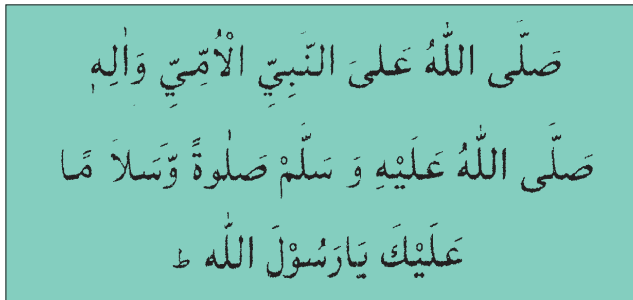 صَلَّى اللّٰهُ عَلىَ النَّبِيِّ الْاُمِّيِّ وَاٰلِهٖ
صَلَّى اللّٰهُ عَلَيْهِ وَ سَلَّمْ صَلٰوةً وَّسَلاَ مًا
عَلَيْكَ يَارَسُوْلَ اللّٰه ط